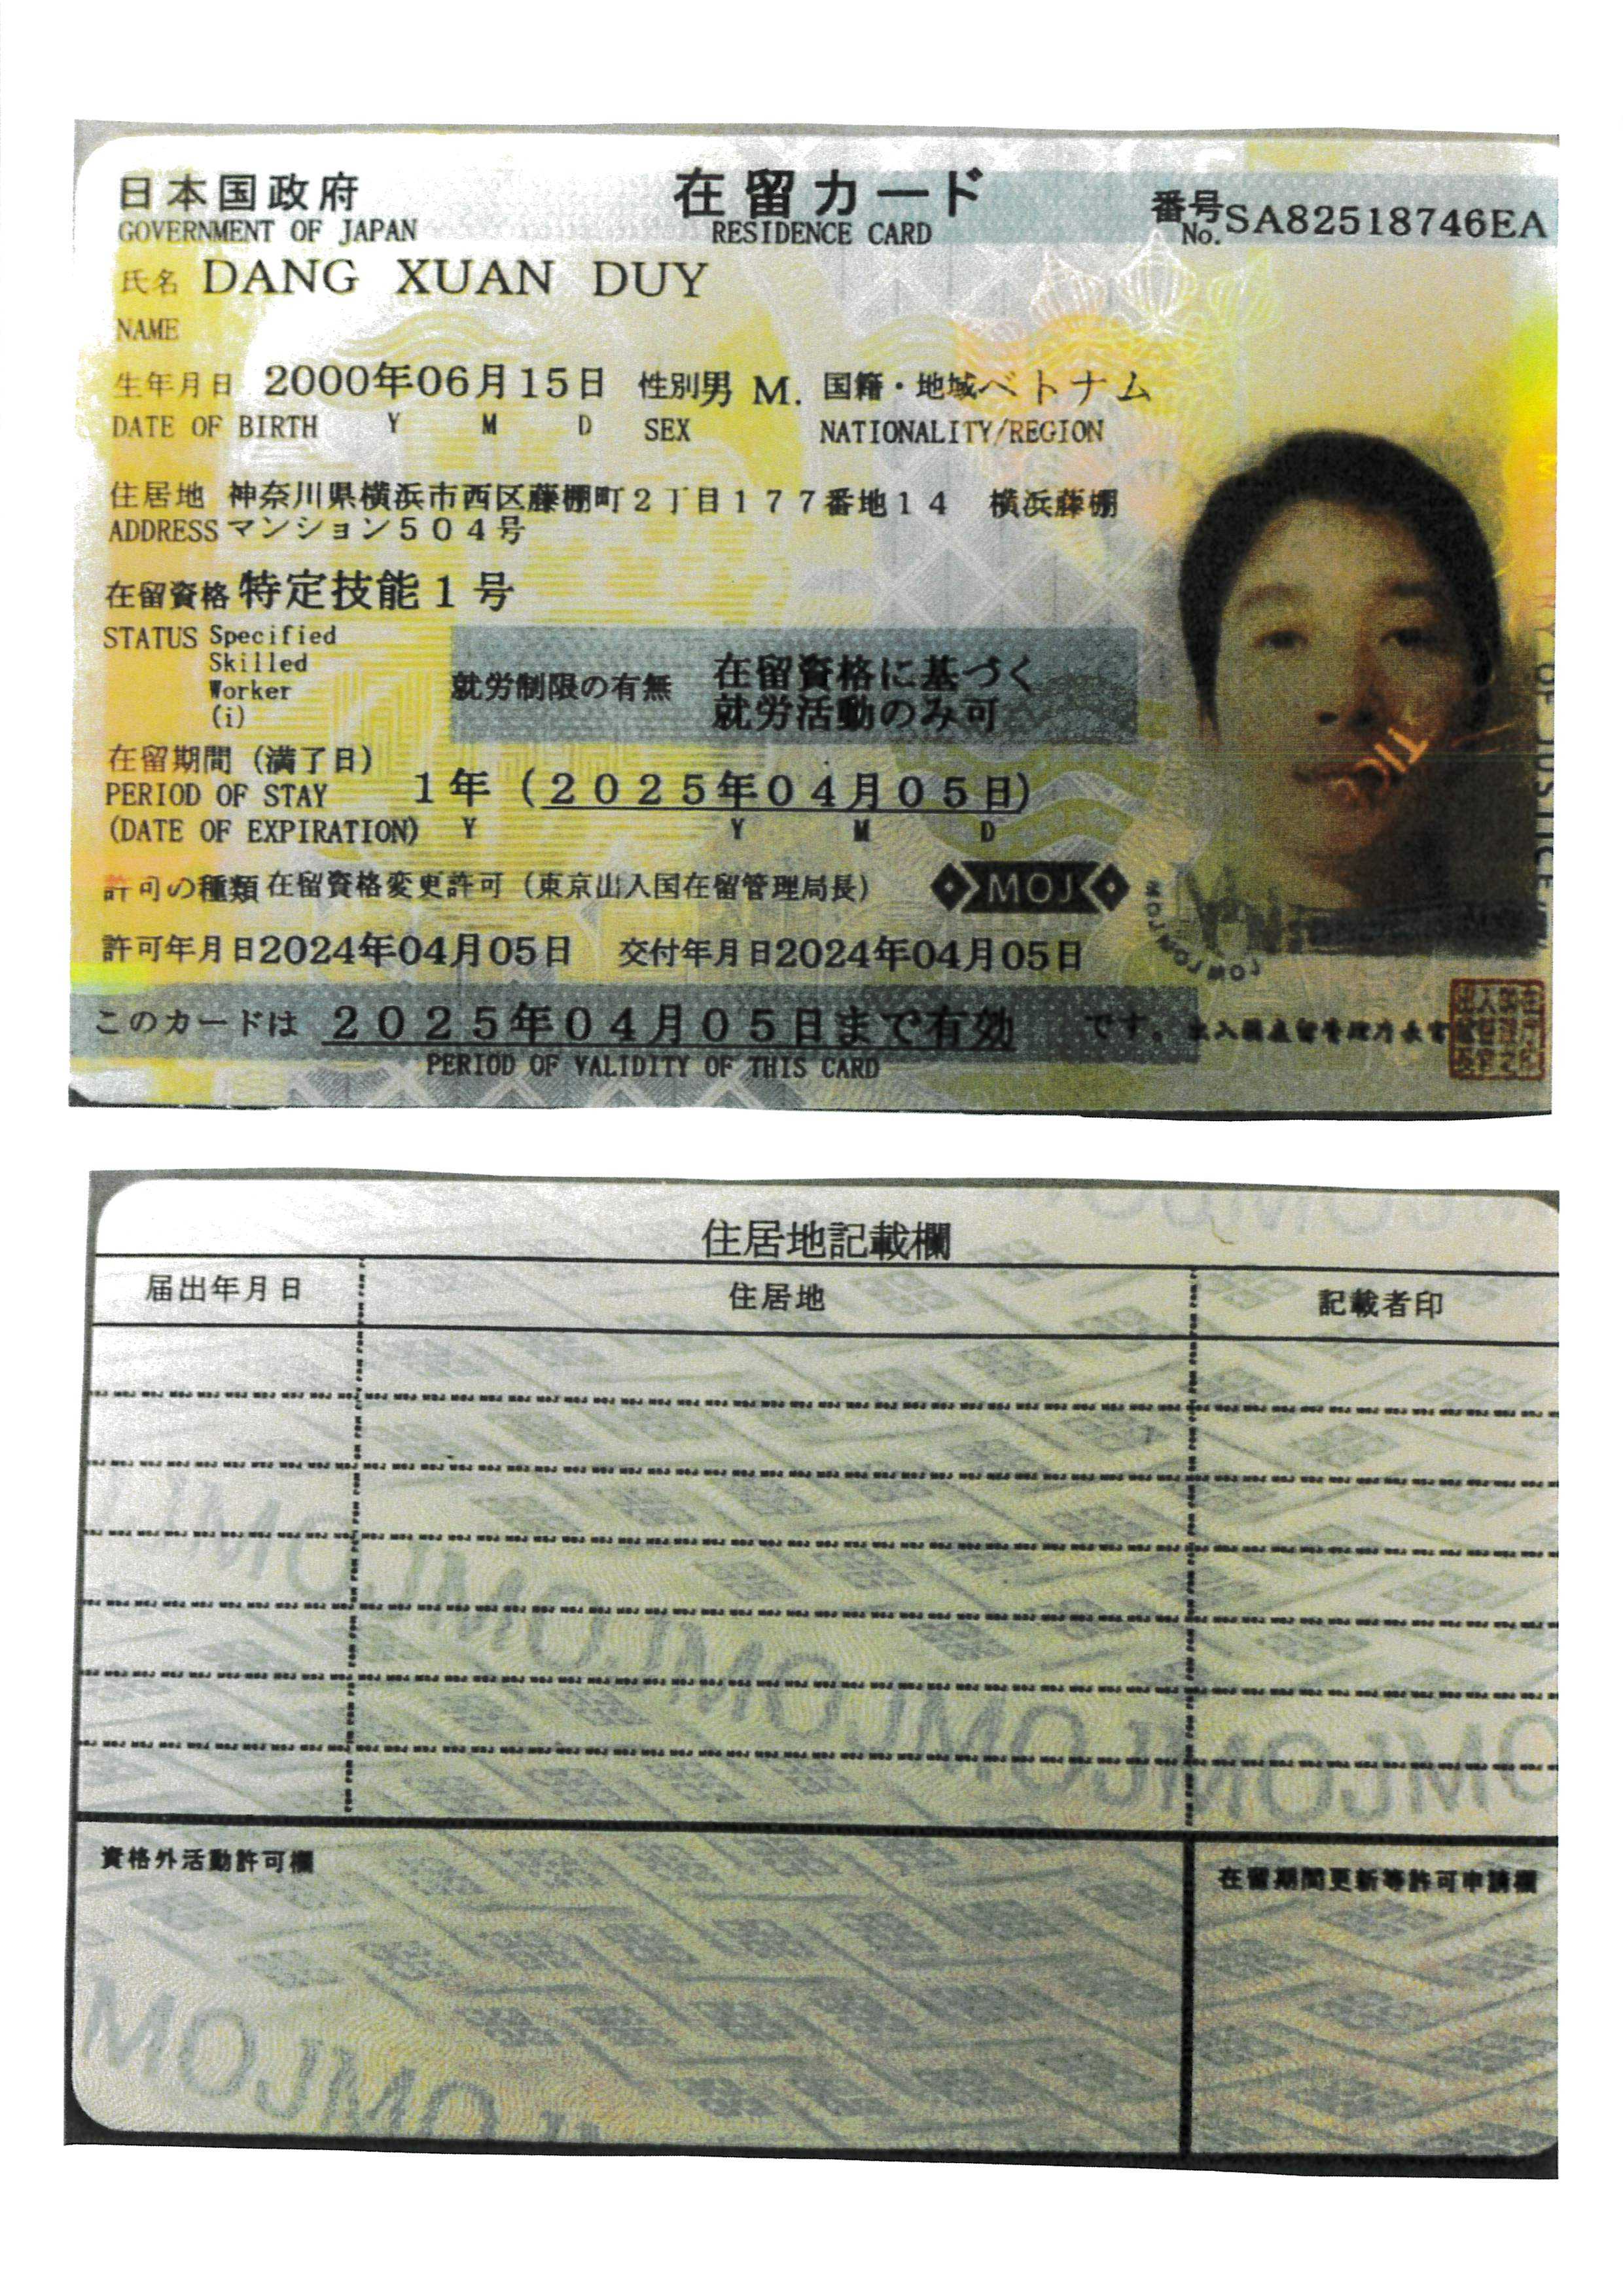 日本国政府
GOVERNMENT OF JAPAN
在留カード
RESIDENCE CARD
番号 No. SA82518746EA
氏名 DANG XUAN DUY
NAME
生年月日 2000年06月15日 性別 男 M. 国籍・地域 ベトナム
DATE OF BIRTH Y M D SEX NATIONALITY/REGION
住居地 神奈川県横浜市西区藤棚町2丁目177番地14 横浜藤棚
ADDRESS マンション504号
在留資格 特定技能1号
STATUS Specified
Skilled
Worker
(i)
就労制限の有無 在留資格に基づく
就労活動のみ可
在留期間(満了日)
PERIOD OF STAY
(DATE OF EXPIRATION)
1年(2025年04月05日)
Y Y M D
許可の種類 在留資格変更許可(東京出入国在留管理局長)
MOJ
許可年月日 2024年04月05日 交付年月日 2024年04月05日
このカードは 2025年04月05日まで有効 です。
PERIOD OF VALIDITY OF THIS CARD
住居地記載欄
届出年月日 住居地 記載者印
資格外活動許可欄
在留期間更新等許可申請欄
MOJMOJMOJMOJMOJMO
MOJMO